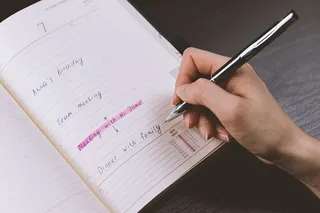 7
Anna's birthday
Team meeting
Meeting with Mr Dane
Dinner with family